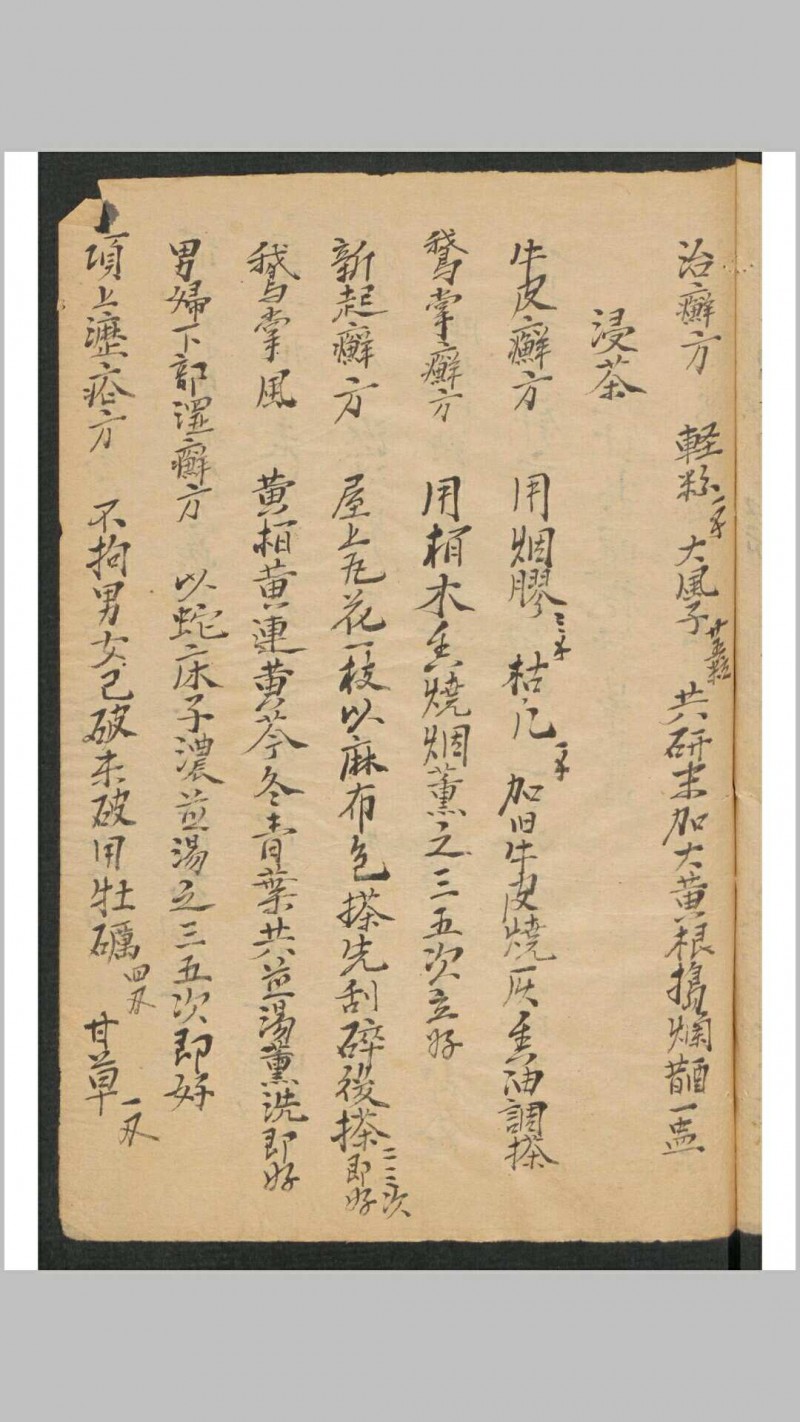 治癬方 輕粉一分 大風子廿五粒 共研末加大黃根搗爛醋一盅
浸茶
牛皮癬方 用烟膠三分 枯凡一分 加旧牛皮燒灰香油調搽
鵞掌癬方 用栢木香燒烟薰之三五次立好
新起癬方 屋上瓦花一枝以麻布包搽先刮碎後搽二三次即好
鵞掌風 黄栢黄連黄芩冬青葉共煎湯薰洗即好
男婦下部溼癬方 以蛇床子濃煎湯之三五次即好
項上瀝疮方 不拘男女已破未破用牡礪四双 甘草一双